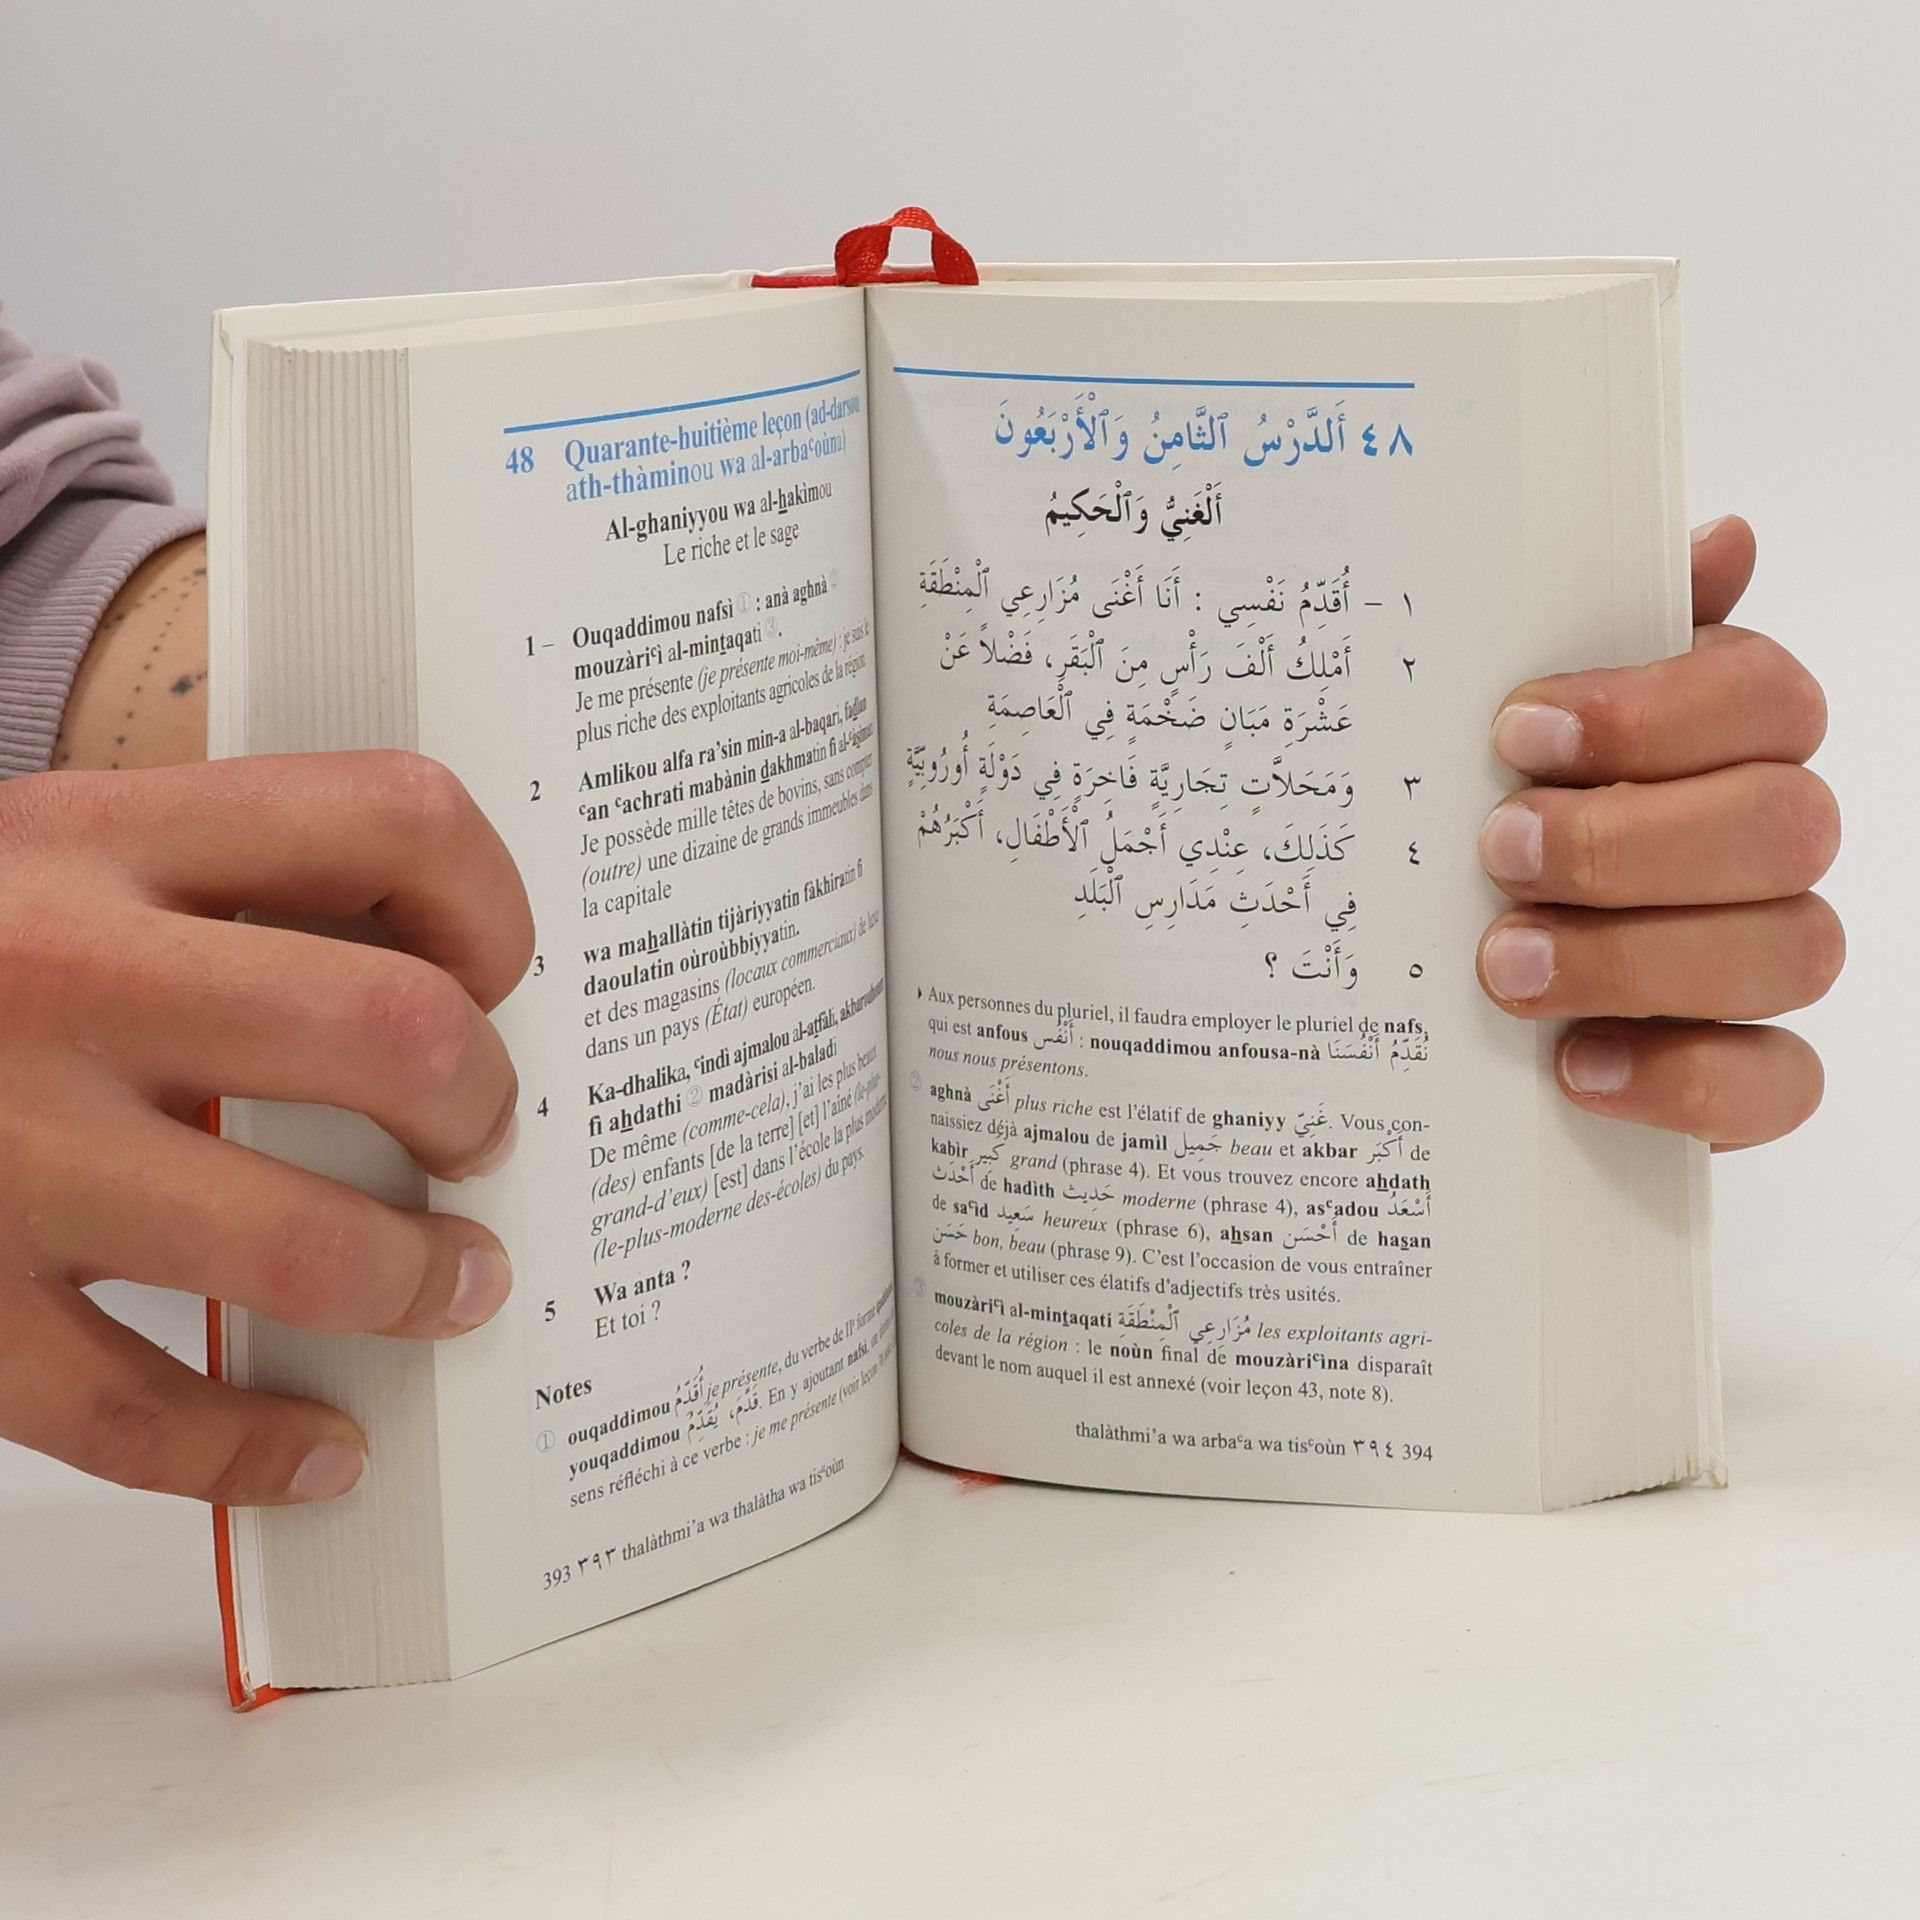 48 Quarante-huitième leçon (ad-darsou
ath-thàminou wa al-arbaʿoùna)
Al-ghaniyyou wa al-hakìmou
Le riche et le sage
1 – Ouqaddimou nafsì ① : anà aghnà ②
mouzàriʿì al-mintaqati ③.
Je me présente (je présente moi-même) : je suis le
plus riche des exploitants agricoles de la région.
2 Amlikou alfa ra’sin min-a al-baqari, fadlan
ʿan ʿachrati mabànin dakhmatin fì al-ʿàsimati
Je possède mille têtes de bovins, sans compter
(outre) une dizaine de grands immeubles dans
la capitale
3 wa mahallàtin tijàriyyatin fàkhiratin fì
daoulatin oùroùbbiyyatin.
et des magasins (locaux commerciaux) de luxe
dans un pays (État) européen.
4 Ka-dhalika, ʿindì ajmalou al-atfàli, akbarouhoum
fì ahdathi ② madàrisi al-baladi
De même (comme-cela), j’ai les plus beaux
(des) enfants [de la terre] [et] l’aîné (le-plus-
grand-d’eux) [est] dans l’école la plus moderne
(le-plus-moderne des-écoles) du pays.
5 Wa anta ?
Et toi ?
Notes
① ouqaddimou أُقَدِّمُ je présente, du verbe de IIᵉ forme
youqaddimou قَدَّمَ، يُقَدِّمُ. En y ajoutant nafsì, on
sens réfléchi à ce verbe : je me présente (voir leçon
393 ٣٩٣ thalàthmi’a wa thalàtha wa tisʿoùn
٤٨ أَلدَّرْسُ ٱلثَّامِنُ وَٱلْأَرْبَعُونَ
أَلْغَنِيُّ وَٱلْحَكِيمُ
١ – أُقَدِّمُ نَفْسِي : أَنَا أَغْنَى مُزَارِعِي ٱلْمِنْطَقَةِ
٢ أَمْلِكُ أَلْفَ رَأْسٍ مِنَ ٱلْبَقَرِ، فَضْلاً عَنْ
عَشْرَةِ مَبَانٍ ضَخْمَةٍ فِي ٱلْعَاصِمَةِ
٣ وَمَحَلاَّتٍ تِجَارِيَّةٍ فَاخِرَةٍ فِي دَوْلَةٍ أُورُوبِّيَّةٍ
٤ كَذَلِكَ، عِنْدِي أَجْمَلُ ٱلْأَطْفَالِ، أَكْبَرُهُمْ
فِي أَحْدَثِ مَدَارِسِ ٱلْبَلَدِ
٥ وَأَنْتَ ؟
Aux personnes du pluriel, il faudra employer le pluriel de nafs,
qui est anfous أَنْفُس : nouqaddimou anfousa-nà نُقَدِّمُ أَنْفُسَنَا
nous nous présentons.
② aghnà أَغْنَى plus riche est l’élatif de ghaniyy غَنِيّ. Vous con-
naissiez déjà ajmalou de jamìl جَمِيل beau et akbar أَكْبَر de
kabìr كَبِير grand (phrase 4). Et vous trouvez encore ahdath
أَحْدَث de hadìth حَدِيث moderne (phrase 4), asʿadou أَسْعَدُ
de saʿìd سَعِيد heureux (phrase 6), ahsan أَحْسَن de hasan
حَسَن bon, beau (phrase 9). C’est l’occasion de vous entraîner
à former et utiliser ces élatifs d’adjectifs très usités.
③ mouzàriʿì al-mintaqati مُزَارِعِي ٱلْمِنْطَقَةِ les exploitants agri-
coles de la région : le noùn final de mouzàriʿìna disparaît
devant le nom auquel il est annexé (voir leçon 43, note 8).
thalàthmi’a wa arbaʿa wa tisʿoùn ٣٩٤ 394